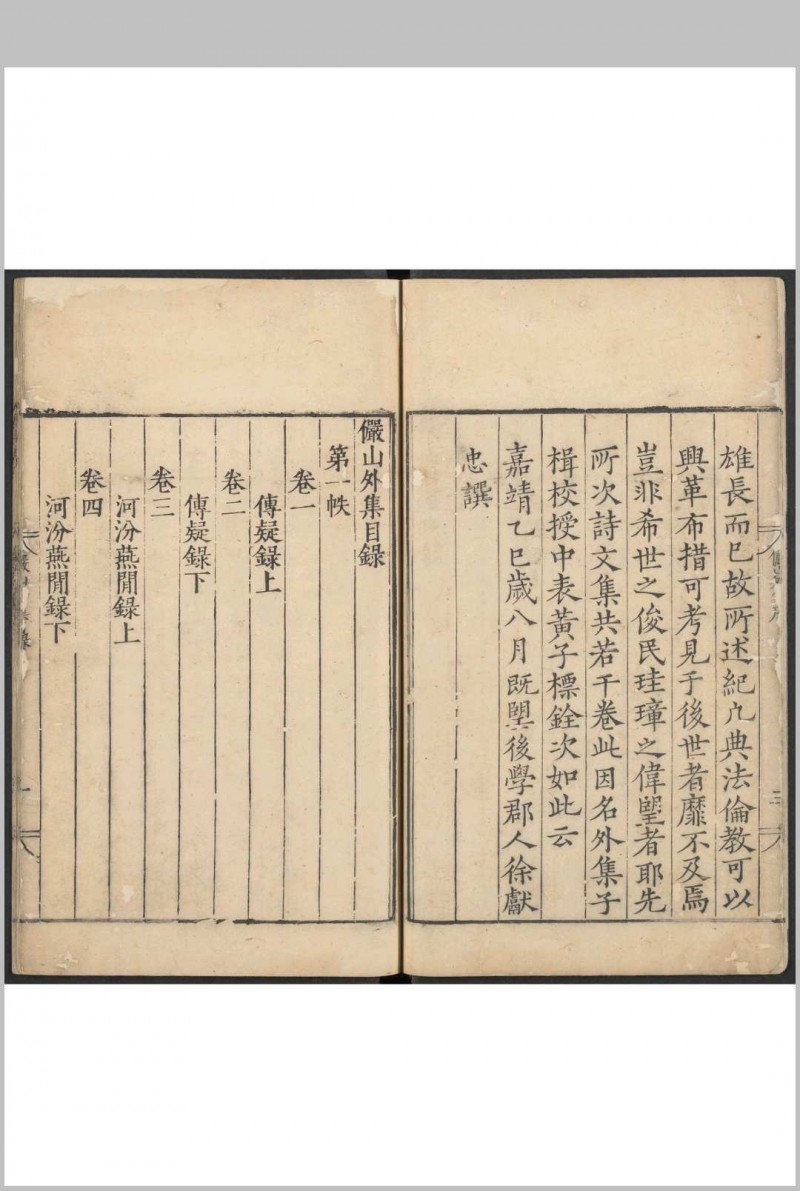 雄長而已故所述紀凡典法倫教可以
興革布措可考見于後世者靡不及焉
豈非希世之俊民珪璋之偉朢者耶先
所次詩文集共若干卷此因名外集子
楫校授中表黃子標銓次如此云
嘉靖乙巳歲八月既朢後學郡人徐獻
忠譔
儼山外集目錄
第一帙
卷一
傳疑錄上
卷二
傳疑錄下
卷三
河汾燕閒錄上
卷四
河汾燕閒錄下